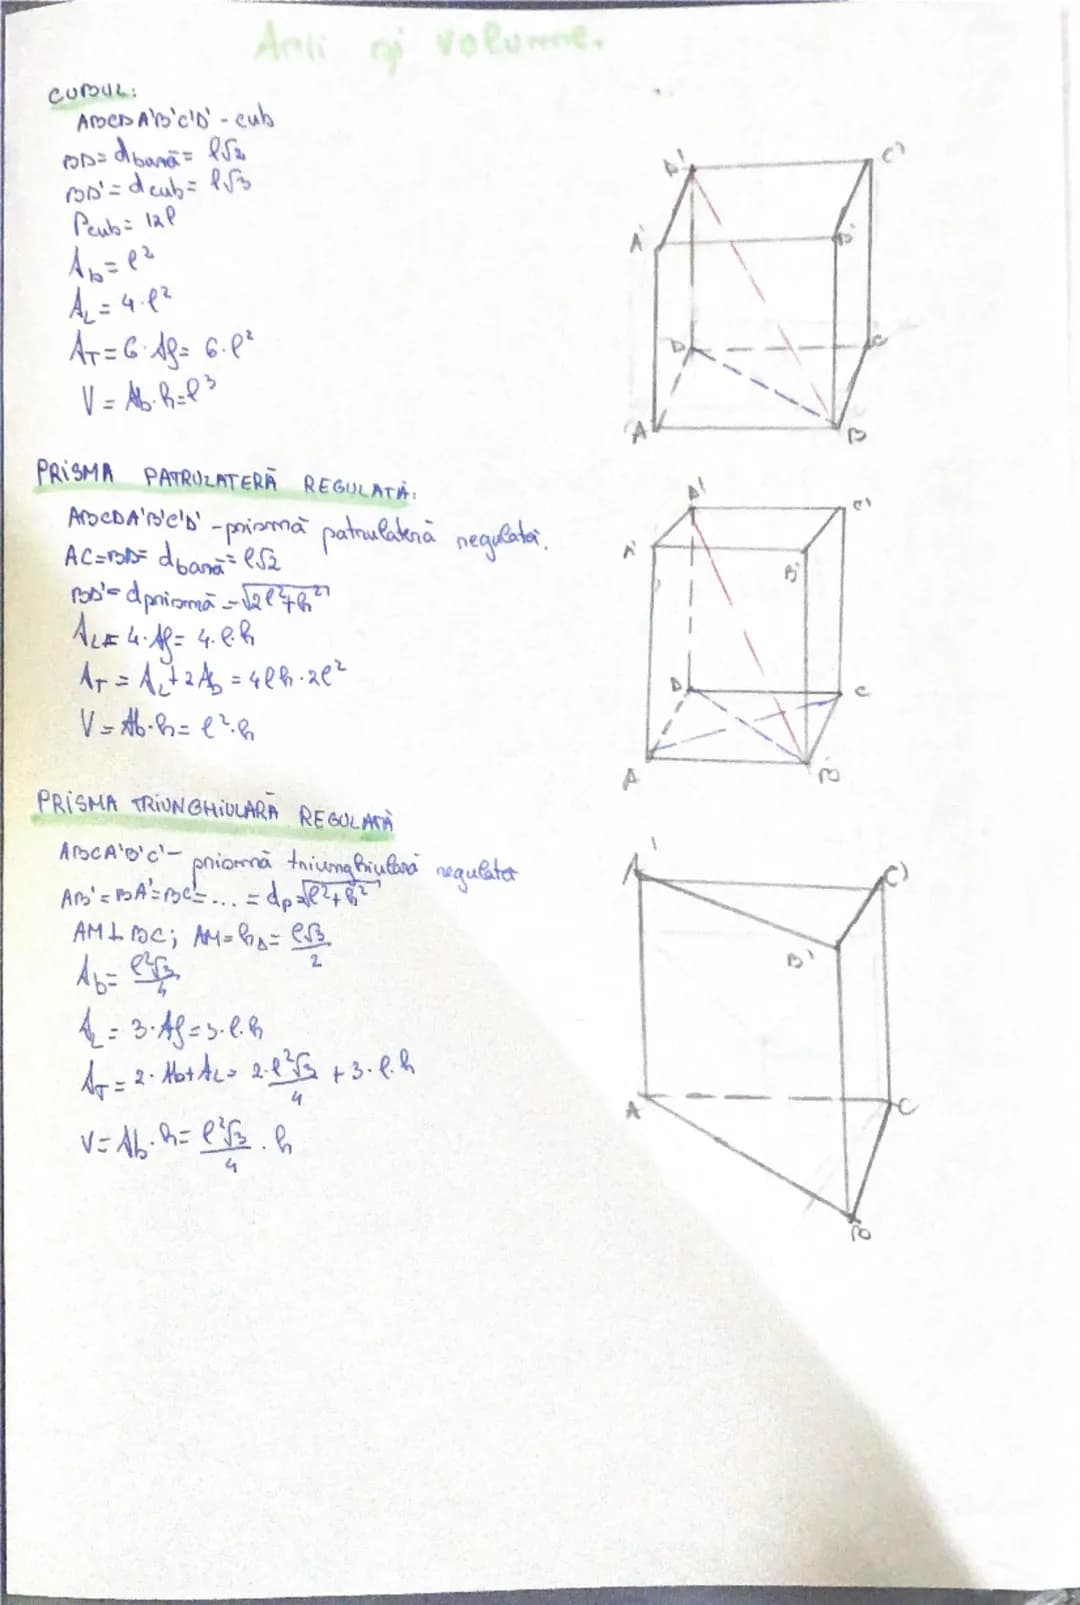 Arii și volume.
CUBUL:
ABCDA'B'C'D' - cub
BD= d bază = l√2
BD'= d cub = l√3
Pcub= 12l
Ab = l²
AL = 4·l²
AT = 6·Af = 6·l²
V = Ab·h = l³
D' C'
A' B'
D C
A B
PRISMA PATRULATERĂ REGULATĂ:
ABCDA'B'C'D' - prismă patrulateră regulată.
AC=BD= d bază = l√2
BD'= d prismă = √2l²+h²
AL = 4·Af = 4·l·h
AT = AL+2Ab = 4lh·2l²
V = Ab·h = l²·h
D' C'
A' B'
D C
A B
PRISMA TRIUNGHIULARĂ REGULATĂ
ABCA'B'C' - prismă triunghiulară regulată
AB'=BA'=BC'=... = dp=√l²+h²
AM⊥BC; AM=h△= l√3/2
Ab= l²√3/4
AL = 3·Af = 3·l·h
AT = 2·Ab+AL = 2·l²√3/4 + 3·l·h
V= Ab·h = l²√3/4 · h
A' C'
B'
A C
B